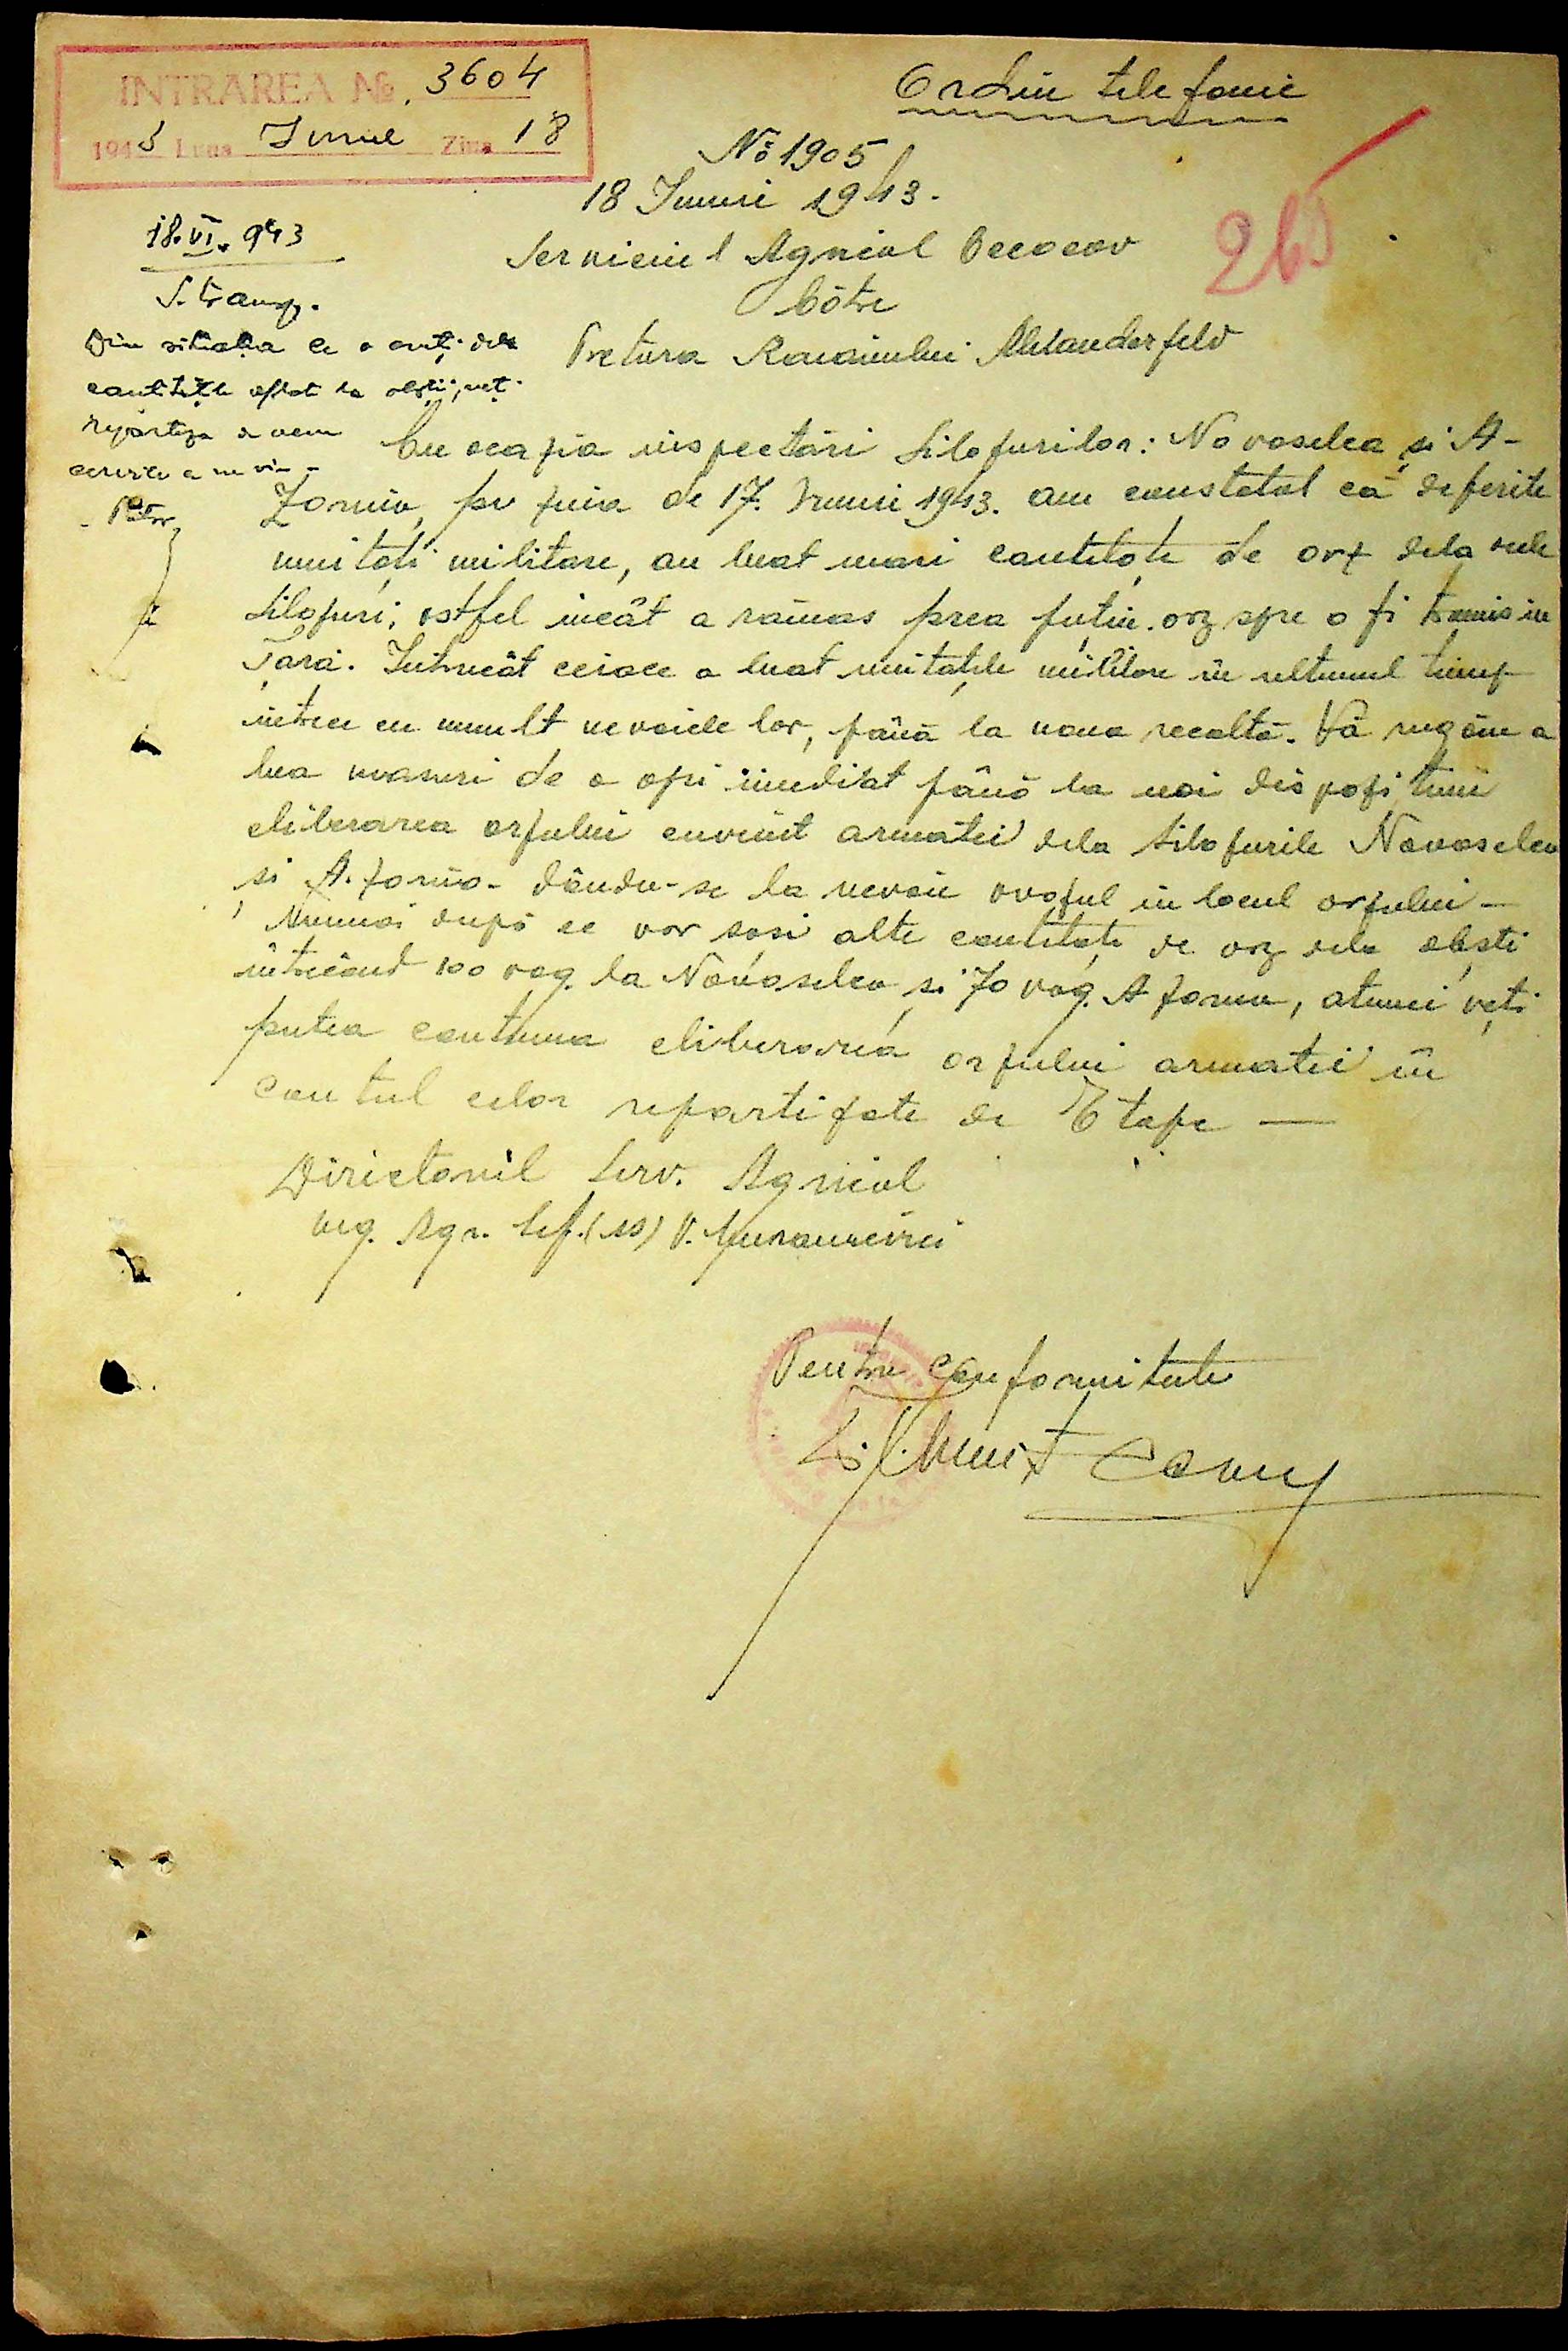 INTRAREA № 3604
1943 Luna Iunie Ziua 18
Ordin telefonic
№ 1905
18 Iunie 1943.
265
Serviciul Agricol Oceacov
Către
Pretura Raionului Alexanderfeld
18.VI.943
S. transp.
Din situația ce o aveți dela
cantitățile aflate la obștii, veți
repartiza
cererile ce ne vin
Cu ocazia inspectări silozurilor: Novoselca și A-
Zornia, pe ziua de 17. Iunie 1943. am constatat că diferite
unități militare, au luat mari cantități de orz dela acele
silozuri, astfel încât a rămas prea puțin orz spre a fi trimis in
Țară. Intrucât ceiace a luat unitațile militare în ultimul timp
intrec cu mult nevoiele lor, până la noua recoltă. Vă rugăm a
lua masuri de a opri imediat până la noi dispozițiuni
eliberarea orzului cuvenit armatei dela silozurile Novoselca
si A. Zornia - dându-se la nevoie ovazul in locul orzului -
Numai după ce vor sosi alte cantități de orz dela obști
intrecând 100 vag. la Novoselca și 70 vag. A Zornia, atunci veți
putea continua eliberarea orzului armatei in
contul celor repartizate de Etape —
Directorul Serv. Agricol
Ing. Agr. Șef. (ss) V.
Pentru conformitate